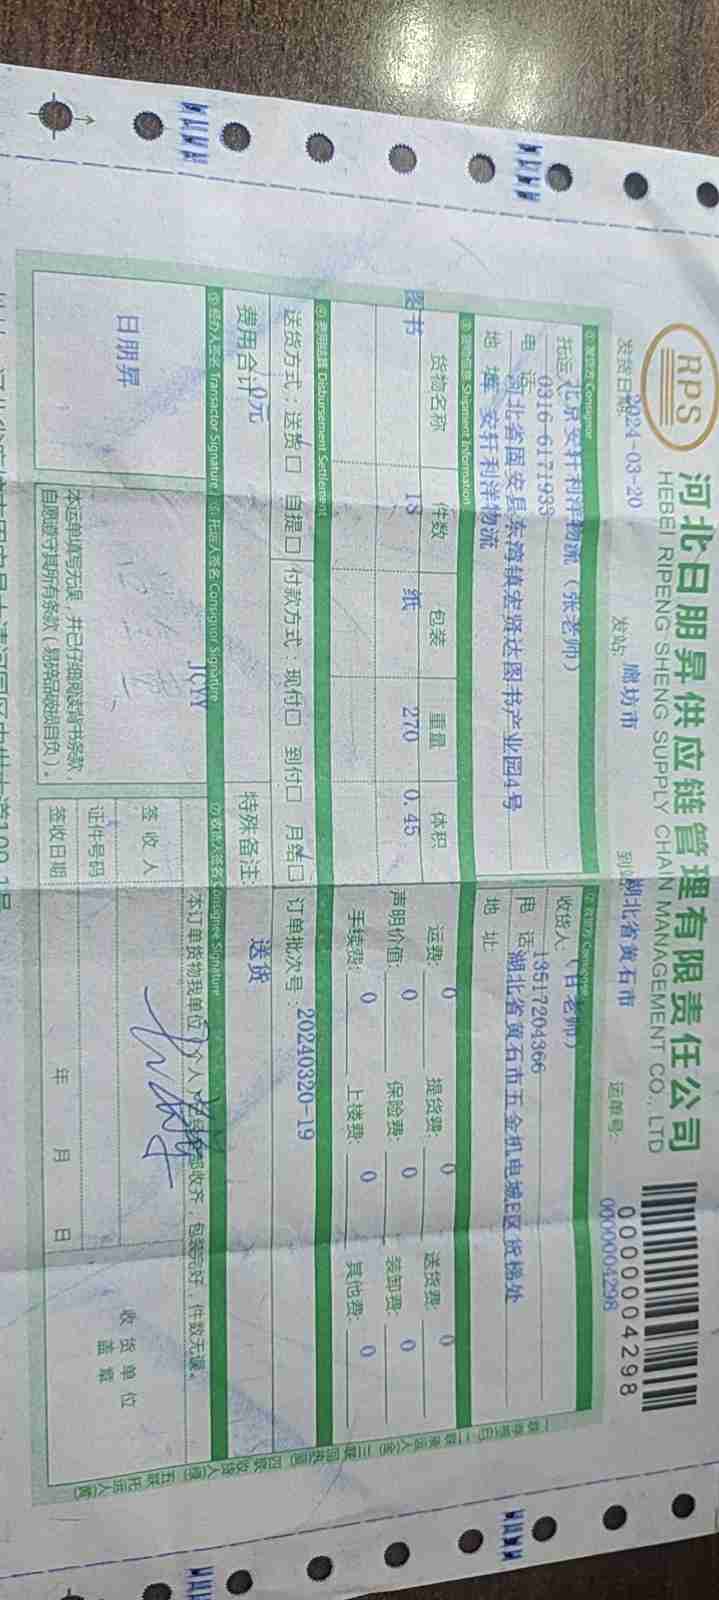 RPS
河北日朋昇供应链管理有限责任公司
HEBEI RIPENG SHENG SUPPLY CHAIN MANAGEMENT CO., LTD
0000004298
发货日期 2024-03-20 发站 廊坊市 到站 湖北省黄石市 运单号: 0000004298
① 发货方 Consignor
托运人 北京安轩利洋物流（张老师）
电 话 0316-6171933
河北省固安县东湾镇宏贤达图书产业园4号
地 址 安轩利洋物流
② 收货方 Consignee
收货人
13517204366
电 话 湖北省黄石市五金机电城E区货梯处
地 址
③ 货物信息 Shipment Information
货物名称 件数 包装 重量 体积
图书 18 纸 270 0.45
运费: 0 提货费: 0 送货费: 0
声明价值: 0 保险费: 0 装卸费: 0
手续费: 0 上楼费: 0 其他费: 0
④ 费用结算 Disbursement Settlement
送货方式: 送货□ 自提□ 付款方式: 现付□ 到付□ 月结□ 订单批次号: 20240320-19
费用合计 0元 特殊备注: 送货
⑤ 经办人签名 Transactor Signature
日朋昇
⑥ 托运人签名 Consignor Signature
JCYY
本运单填写无误，并已仔细阅读背书条款，
自愿遵守其所有条款（易碎品破损自负）。
⑦ 收货人签名 Consignee Signature
本订单货物我单位（个人）已经全部收齐，包装完好，件数无误。
签 收 人
证件号码
签收日期 年 月 日
收货单位
盖章